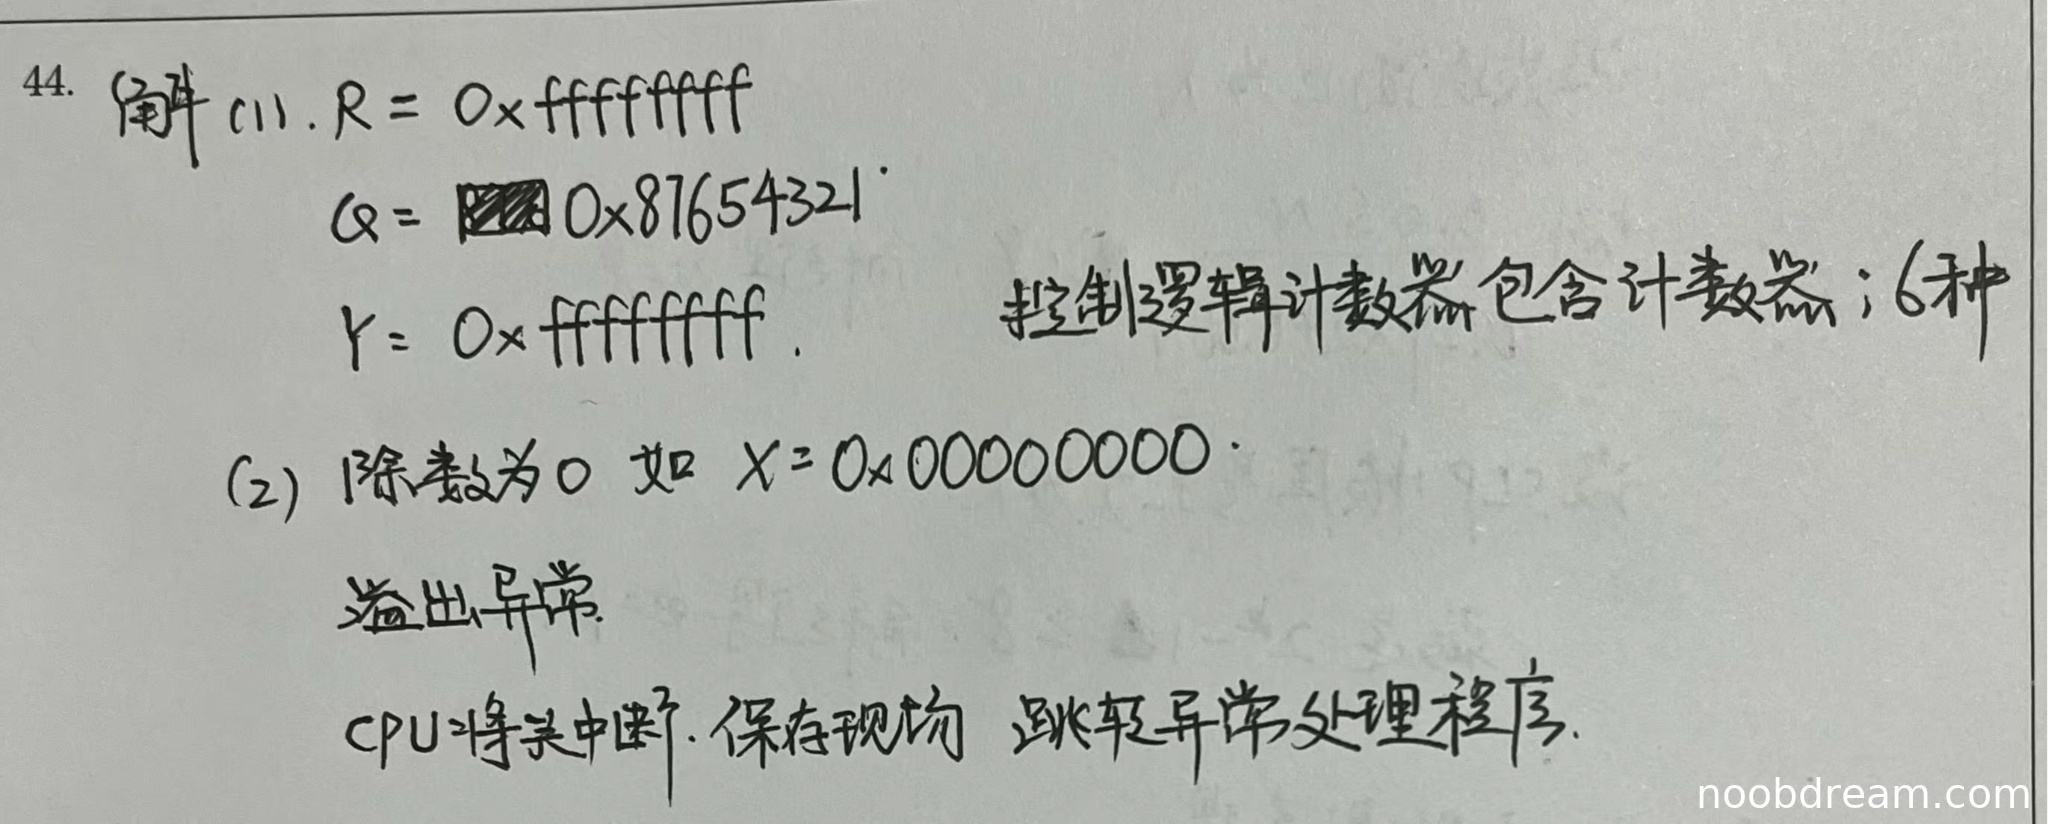 44. 解 (1). R = 0xffffffff
Q = 0x87654321.
Y = 0xffffffff. 控制逻辑计数器包含计数器; 6种
(2) 除数为0 如 X = 0x00000000.
溢出异常.
CPU将关中断. 保存现场 跳转异常处理程序.
noobdream.com